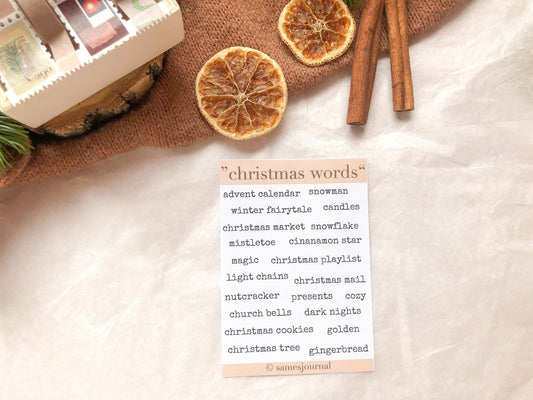 ”christmas words“
advent calendar snowman
winter fairytale candles
christmas market snowflake
mistletoe cinanamon star
magic christmas playlist
light chains christmas mail
nutcracker presents cozy
church bells dark nights
christmas cookies golden
christmas tree gingerbread
© samesjournal